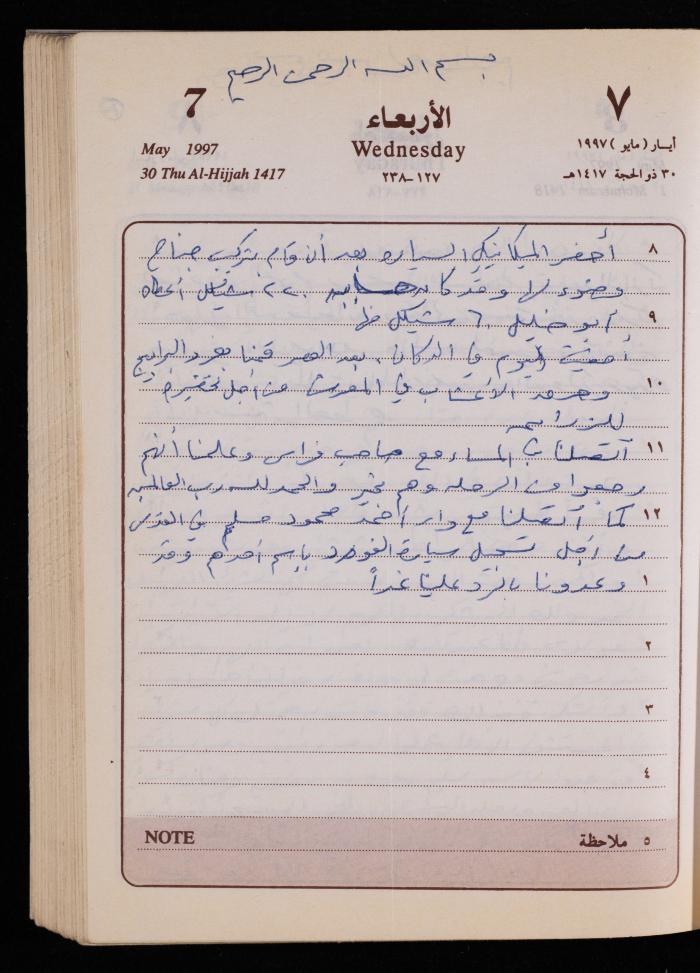 بسم الله الرحمن الرحيم
7
الأربعاء
٧
May 1997
Wednesday
أيـار (مايو) ١٩٩٧
30 Thu Al-Hijjah 1417
١٢٧-٢٣٨
٣٠ ذو الحجة ١٤١٧هـ
٨ أحضر الميكانيكي السيارة بعد أن قام بتركيب جناح
وضوء لها وقد كان حسابه ٢٢٠ شيكل أعطاه
٩ أبو خليل ٦٠ شيكل
أمضيت اليوم في الدكان. بعد العصر قمنا
١٠ الأعشاب في المعرش من أجل تحضيره
للزراعة
١١ اتصلنا في المساء مع صاحب فراس وعلمنا أنهم
رجعوا من الرحلة وهم بخير والحمد لله رب العالمين
١٢ كما اتصلنا مع دار أحمد محمود مسلم في القدس
من أجل تسجيل سيارة الفورد بإسم أحدهم وقد
١ وعدونا بالرد علينا غداً
٢
٣
٤
NOTE
٥ ملاحظة